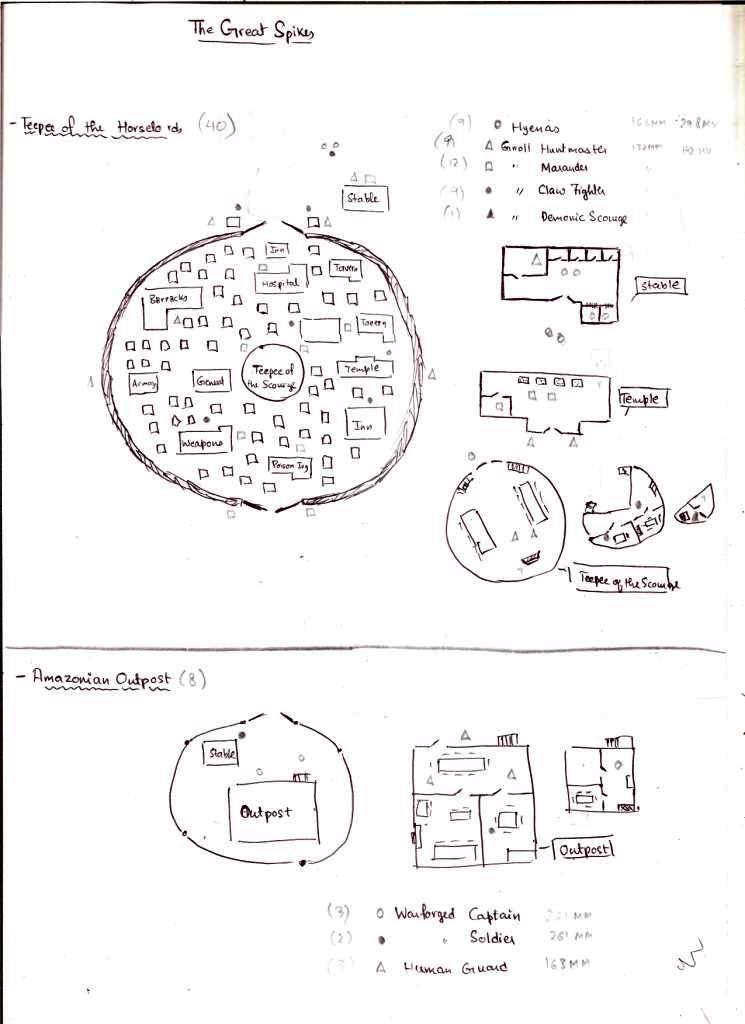 The Great Spikes
- Teepee of the Horselords (40)
(9) Hyenas 168 MM
(9) Gnoll Huntmaster 172 MM
(12) " Marauder
(9) " Claw Fighter
(1) " Demonic Scourge
Stable
Inn
Hospital
Tavern
Barracks
Tavern
Teepee of
the Scourge
Temple
Armory
Inn
Weapons
Poison Ing
Stable
Temple
Teepee of the Scourge
- Amazonian Outpost (8)
Stable
Outpost
Outpost
(3) Warforged Captain MM
(2) " Soldier 261 MM
(3) Human Guard 168 MM